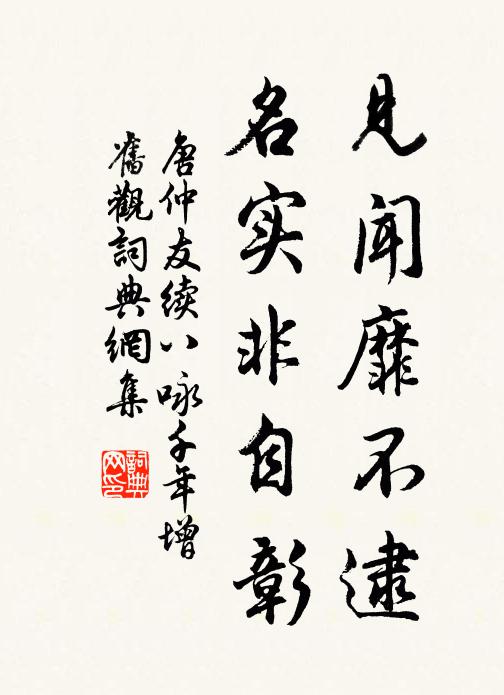 见闻靡不逮
名实非自彰
唐仲友续八咏千年增
旧觀詞典網集
詞典网印